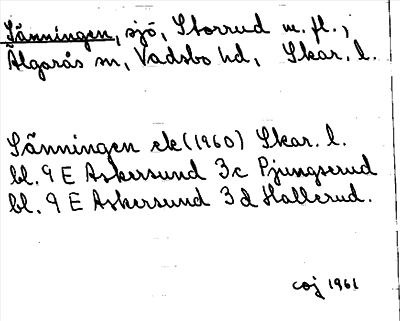 Sänningen, sjö, Storrud m. fl.,
Älgarås sn, Vadsbo hd, Skar. l.
Sänningen ek (1960) Skar. l.
bl. 9 E Askersund 3c Pjungserud
bl. 9 E Askersund 3d Hallerud.
coj 1961